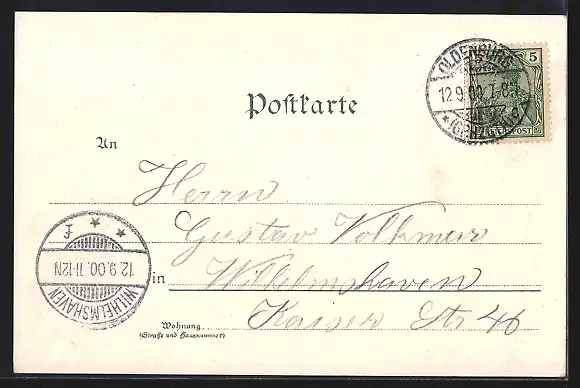 OLDENBURG
5
12.9.00.7-8
*(GRH.
Postkarte
An
Herrn
Gustav Volkmer
in Wilhelmshaven
Kaiser Str 46
Wohnung
(Straße und Hausnummer)
* * F
12.9.00.11-12N
WILHELMSHAVEN